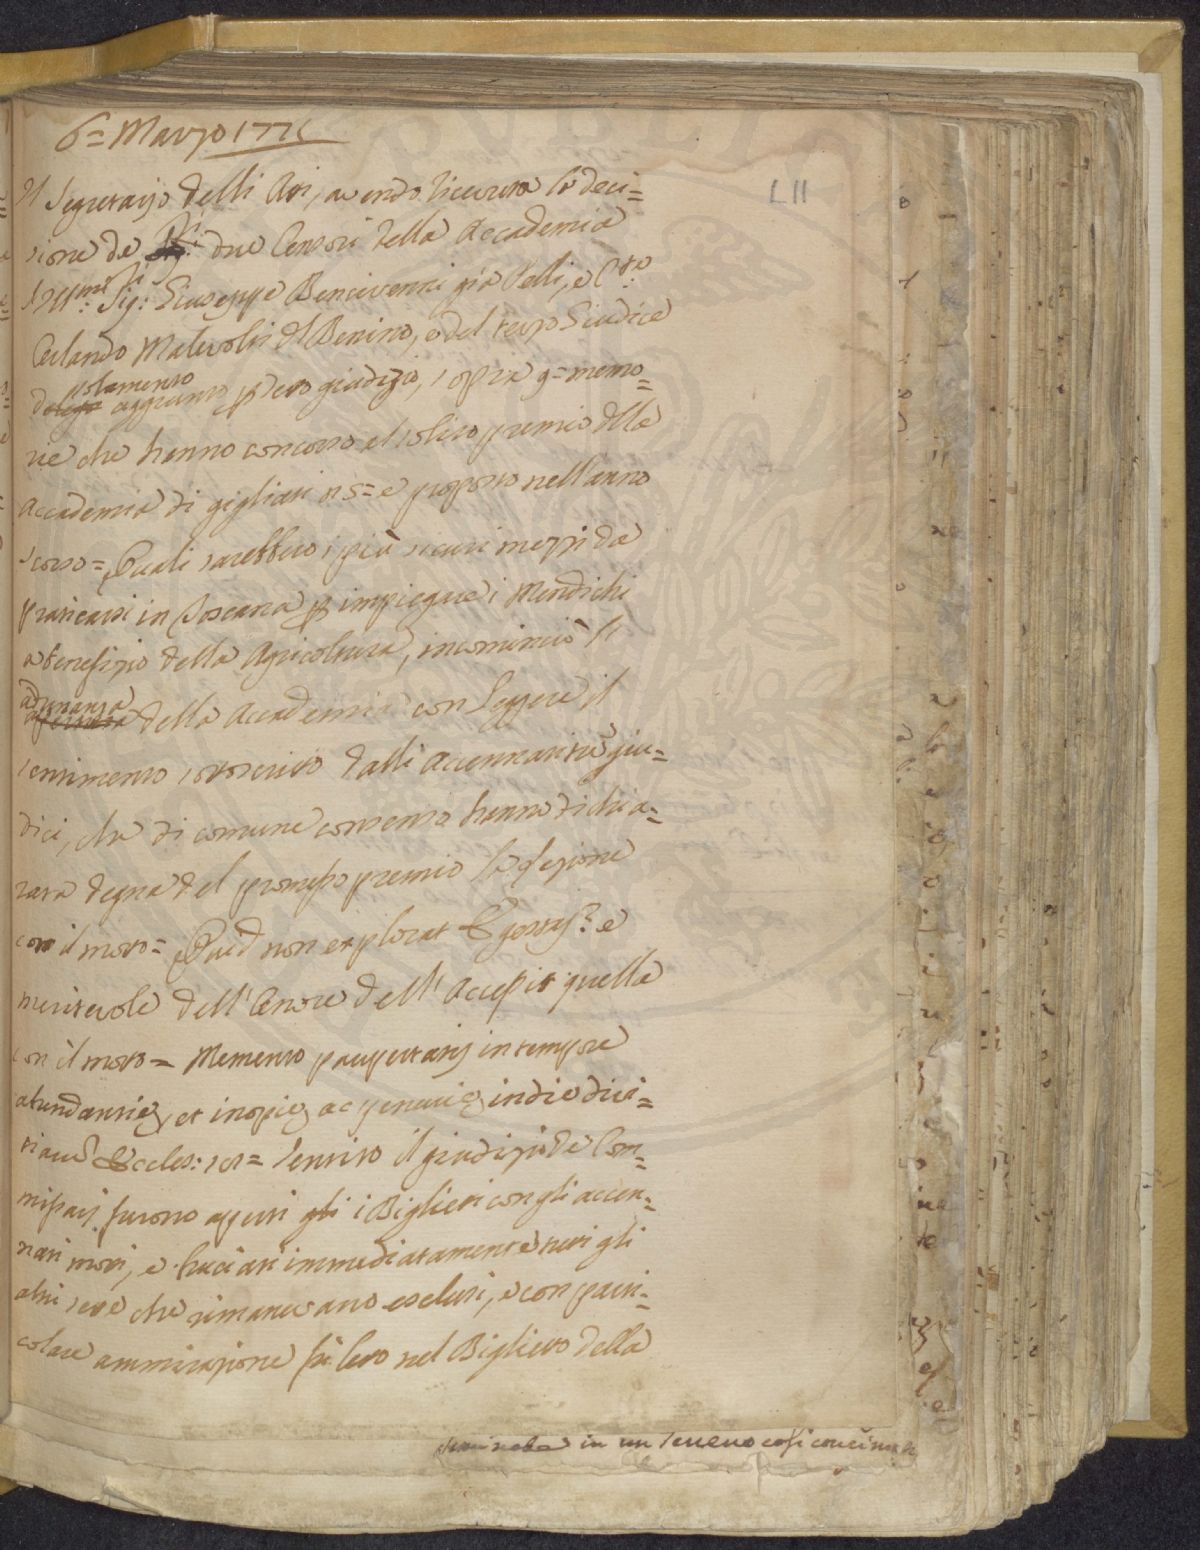 6= Marzo 177
LII
Il Segretario delli Atti, avendo ricevuta la deci=
sione de due Censori della Accademia
Ill.mi Sig.ri Giuseppe Bencivenni già Pelli, e Cte
Orlando Malevolti del Benino, e del terzo Giudice
solamente
aggiunto per detto giudizio, sopra 9= memo=
rie che hanno concorso al solito premio della
Accademia di gigliati 25= e proposto nell'anno
scorso= Quali sarebbero i più sicuri mezzi da
praticarsi in Toscana per impiegare i Mendichi
a benefizio della Agricoltura, incominciò l'
adunanza della Accademia con Leggere il
sentimento sottoscritto dalli accennati tre giu=
dici, che di comune consenso hanno dichia=
rata degna del promesso premio la dissertazione
con il motto= Quid non explorat Egestas? e
meritevole dell'Onore dell'Accessit quella
con il motto= Memento paupertatis in tempore
abundantiae, et inopiae ac penuriae in die divi=
tiarum Eccles: 18= Sentito il giudizio de Com=
missarj furono aperti gli i Biglietti con gli accen=
nati motti, e bruciati immediatamente tutti gli
altri sette che rimanevano esclusi, e con parti=
colare ammirazione fu letto nel Biglietto della
seminata in un terreno così concimata